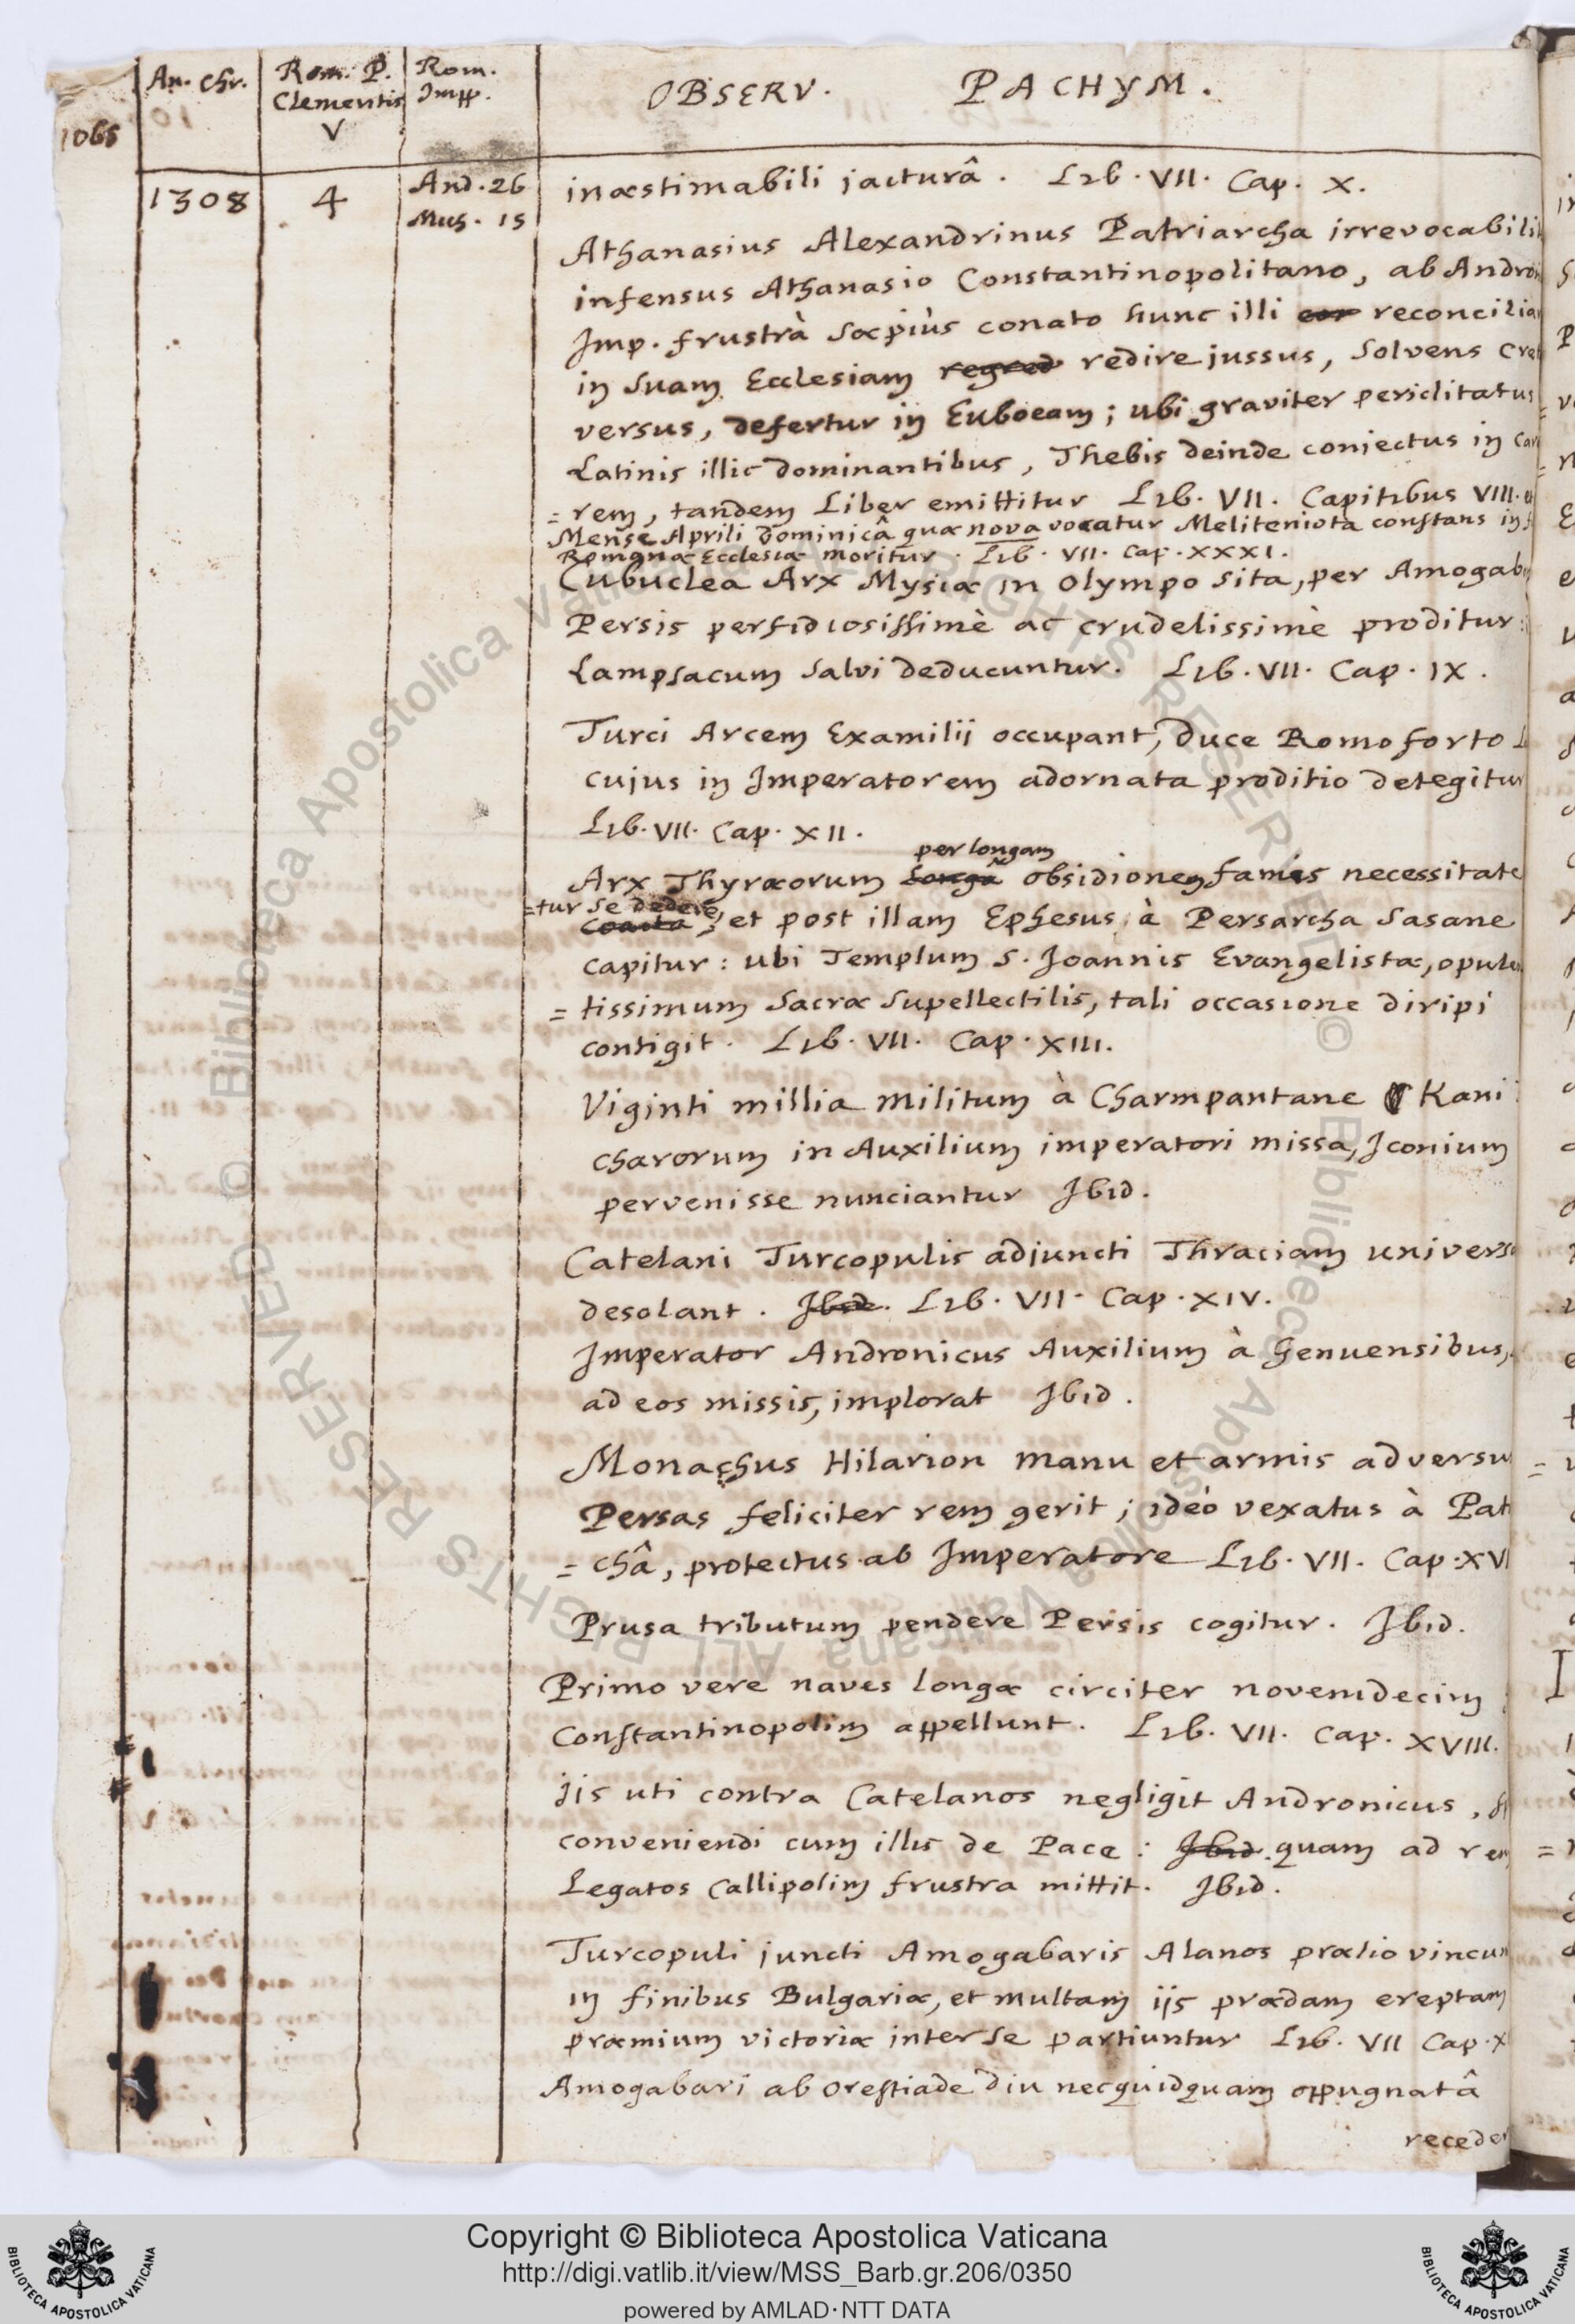 An. Chr.
Rom. P.
Clementis
V
Rom.
Impp.
OBSERV. PACHYM.
1065
1308
4
And. 26
Mus. 15
inæstimabili jacturâ. Lib. VII. Cap. X.
Athanasius Alexandrinus Patriarcha irrevocabili
infensus Athanasio Constantinopolitano, ab Andron
Imp. frustrà sæpiùs conato hunc illi reconcilia
in suam Ecclesiam regred redire jussus, solvens Cret
versus, defertur in Euboeam; ubi graviter periclitatus
Latinis illic dominantibus, Thebis deinde coniectus in Car
= rem, tandem Liber emittitur Lib. VII. Capitibus VIII.
Mense Aprili Dominicâ quæ nova vocatur Meliteniota constans in
Romanæ Ecclesiæ moritur. Lib. VII. Cap. XXXI.
Cubuclea Arx Mysiæ in Olympo sita, per Amogab
Persis perfidiosissimè ac crudelissimè proditur:
Lampsacum salvi deducuntur. Lib. VII. Cap. IX.
Turci Arcem Examilii occupant, Duce Romoforto
cujus in Imperatorem adornata proditio detegitur
Lib. VII. Cap. XII.
per longam
Arx Thyræorum Longâ obsidionem famis necessitate
=tur se dedere,
coacta; et post illam Ephesus à Persarcha Sasane
capitur: ubi Templum S. Joannis Evangelistæ, opulen
= tissimum sacræ supellectilis, tali occasione diripi
contigit. Lib. VII. Cap. XIII.
Viginti millia militum à Charmpantane Kani
charorum in Auxilium imperatori missa, Iconium
pervenisse nunciantur Ibid.
Catelani Turcopulis adjuncti Thraciam univers
desolant. Ibid. Lib. VII. Cap. XIV.
Imperator Andronicus Auxilium à Genuensibus,
ad eos missis, implorat Ibid.
Monachus Hilarion manu et armis adversu
Persas feliciter rem gerit; ideò vexatus à Pat
= châ, protectus ab Imperatore Lib. VII. Cap. XVI
Prusa tributum pendere Persis cogitur. Ibid.
Primo vere naves longæ circiter novemdecim
Constantinopolim appellunt. Lib. VII. Cap. XVIII.
jis uti contra Catelanos negligit Andronicus,
conveniendi cum illis de Pace: Ibid. quam ad rem
Legatos Callipolim frustra mittit. Ibid.
Turcopuli juncti Amogabaris Alanos prælio vincun
in finibus Bulgariæ, et multam iis prædam ereptam
præmium victoriæ inter se partiuntur Lib. VII Cap. X
Amogabari ab Orestiade diu necquidquam oppugnatâ
receder
Copyright © Biblioteca Apostolica Vaticana
http://digi.vatlib.it/view/MSS_Barb.gr.206/0350
powered by AMLAD·NTT DATA
BIBLIOTECA APOSTOLICA VATICANA
BIBLIOTECA APOSTOLICA VATICANA
© Biblioteca Apostolica Vaticana ALL RIGHTS RESERVED